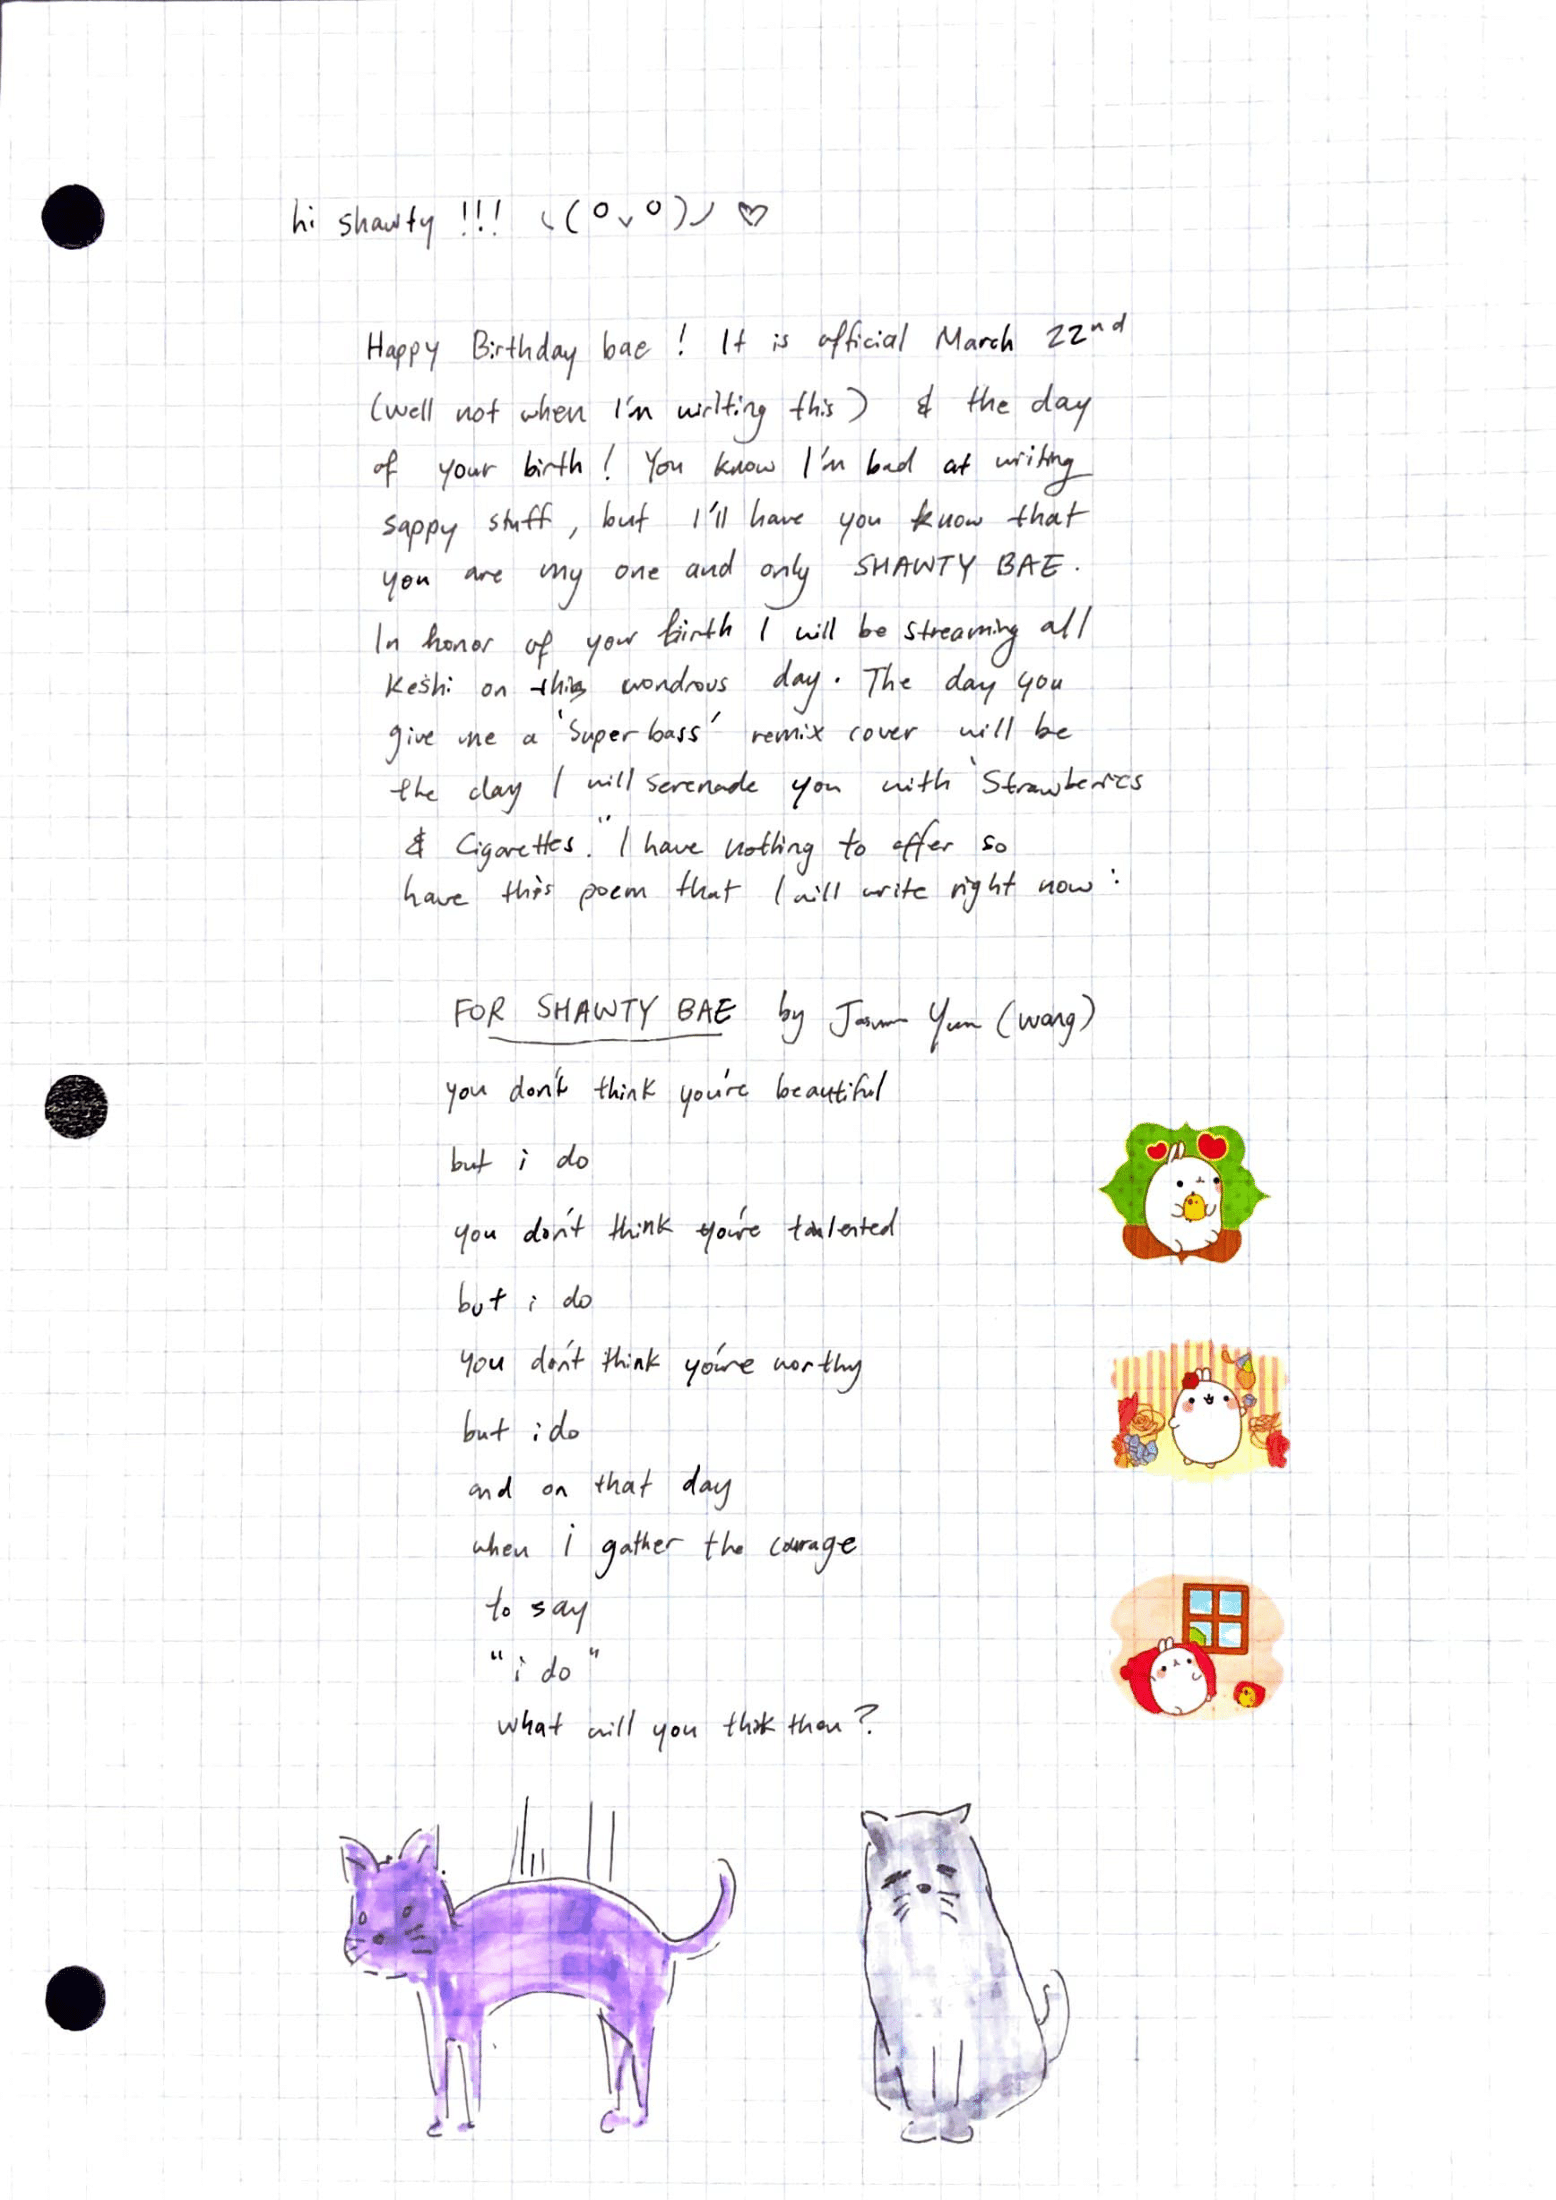 hi shawty !!! ヽ(°ᵥ°)ノ ♡
Happy Birthday bae ! It is official March 22nd
(well not when I'm writing this) & the day
of your birth ! You know I'm bad at writing
sappy stuff, but I'll have you know that
you are my one and only SHAWTY BAE.
In honor of your birth I will be streaming all
Keshi on this wondrous day. The day you
give me a 'Super bass' remix cover will be
the day I will serenade you with 'Strawberries
& Cigarettes." I have nothing to offer so
have this poem that I will write right now :
FOR SHAWTY BAE by Yun (Wang)
you don't think you're beautiful
but i do
you don't think you're talented
but i do
you don't think you're worthy
but i do
and on that day
when i gather the courage
to say
"i do"
what will you think then?